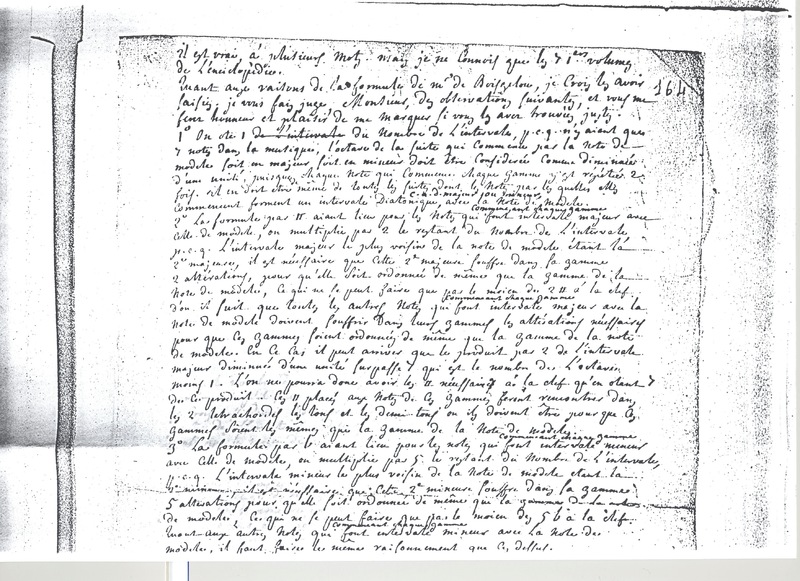 il est vrai, à plusieurs mots. mais je ne connois que les 7 1ers volumes
de L'enciclopédie.
Quant aux raisons de la formule de mr de Boisgelou, je crois les avoir
164
saisies, je vous fais juge, Monsieur, des observations suivantes, et vous me
ferez honneur et plaisir de me marquer si vous les avez trouvées justes.
1° On ote 1 de L'intervale du Nombre de L'intervale, p.c.q. n'y aiant que
7 notes dans la musique, l'octave de la suite qui commence par la note de
modele soit en majeur soit en mineur doit être considerée comme diminuée
d'une unité, puisque chaque Note qui commence chaque gamme s'y repette 2
fois. il en doit être même de toutes les suites dont les Notes par les quelles elles
commencent forment un intervale Diatonique, avec la Note de modele.
commencant chaque gamme
2° La formule par # aiant lieu pour les Notes qui font intervale majeur avec
celle de modele, on multiplie par 2 le restant du Nombre de L'intervale
p.c.q. L'intervale majeur le plus voisin de la note de modele étant la
2de majeure, il est nécessaire que cette 2de majeure souffre dans sa gamme
2 altérations, pour qu'elle soit ordonnée de même que la gamme de la
Note de modele, ce qui ne se peut faire que par le moien des 2 # à la clef.
commencant chaque gamme
d'où il suit que toutes les autres Notes qui font intervale majeur avec la
Note de modele doivent souffrir dans leurs gammes les altérations nécessaires
pour que ces gammes soient ordonnées de même que la gamme de la note
de modele. En ce cas il peut arriver que le produit par 2 de l'intervale
majeur diminué d'une unité surpasse 7 qui est le nombre de L'octave
moins 1. L'on ne pourra donc avoir les # nécessaires à la clef qu'en otant 7
de ce produit. Ces # placés aux Notes de ces gammes feront rencontrer dans
les 2 tetrachordes les tons et les demi-tons où ils doivent être pour que ces
gammes soient les mêmes que la gamme de la Note de modele.
commencant chaque gamme
3° La formule par b aiant lieu pour les notes qui font intervale mineur
avec celle de modele, on multiplie par 5 le restant du Nombre de L'intervale,
p.c.q. L'intervale mineur le plus voisin de la Note de modele étant la
2de mineure, il est nécessaire que cette 2de mineure souffre dans sa gamme
5 altérations pour qu'elle soit ordonnée de même que la gamme de la note
de modele, ce qui ne se peut faire que par le moien des 5 b à la clef.
commencant chaque gamme
Quant aux autres Notes qui font intervale mineur avec la Note de
modele, il faut faire le même raisonnement que ci dessus.